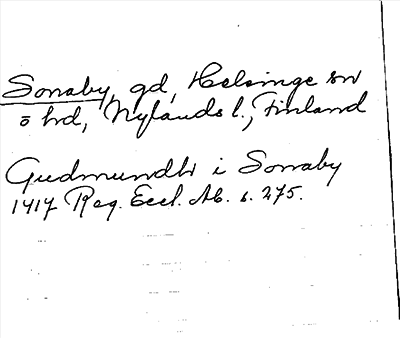 Sonaby, gd, Helsinge sn
o hd, Nylands l., Finland
Gudmundh i Sonaby
1417 Reg. Eccl. Ab. s. 275.